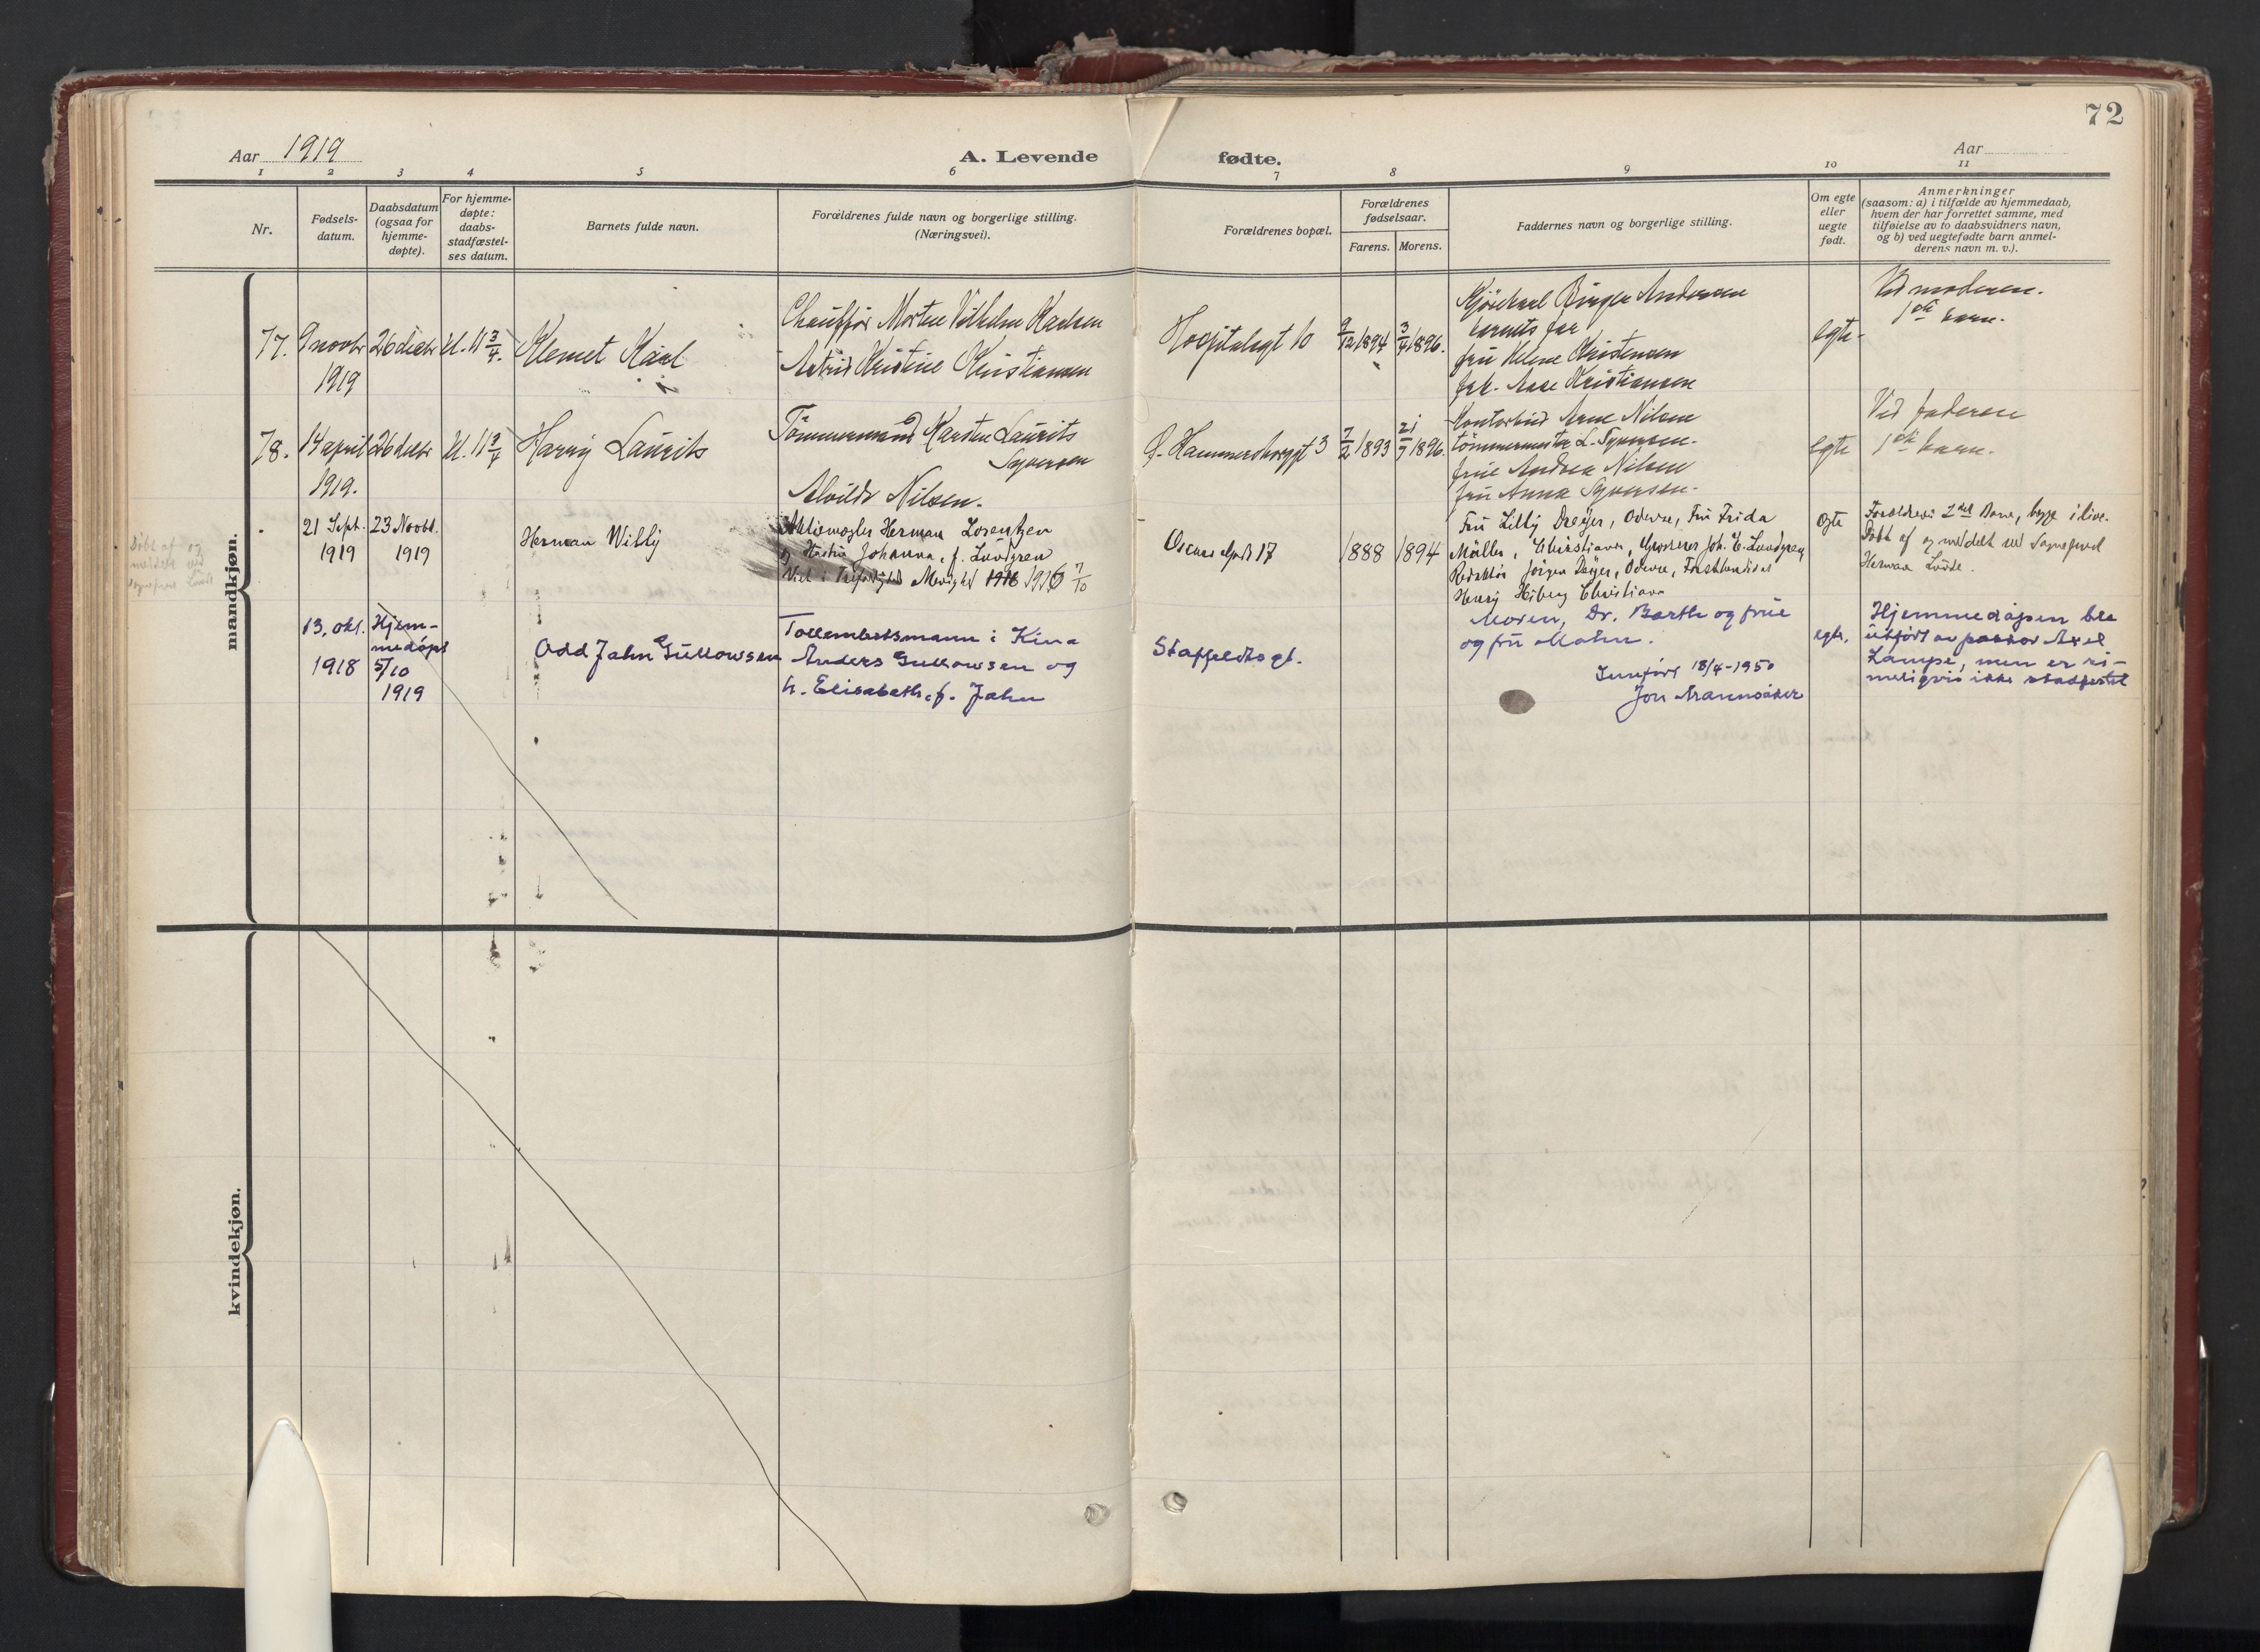 72
Aar 1919
A. Levende fødte.
Aar
1 2 3 4 5 6 7 8 9 10 11
Nr.
Fødsels-
datum.
Daabsdatum
(ogsaa for
hjemme-
døpte).
For hjemme-
døpte:
daabs-
stadfæstel-
ses datum.
Barnets fulde navn.
Forældrenes fulde navn og borgerlige stilling.
(Næringsvei).
Forældrenes bopæl.
Forældrenes
fødselsaar.
Farens. Morens.
Faddernes navn og borgerlige stilling.
Om egte
eller
uegte
født.
Anmerkninger
(saasom: a) i tilfælde av hjemmedaab,
hvem der har forrettet samme, med
tilføielse av to daabsvidners navn,
og b) ved uegtefødte barn anmel-
derens navn m. v.).
mandkjøn.
77.
9 novbr
1919
26 decbr
kl. 11 3/4.
Klemet Karl
Chauffør Morten Vilhelm Karlsen
Astrid Kristine Kristiansen
Hospitalsgt 10
9/12 1894
3/4 1896.
Birger Andersen
barnets far
fru Helene Kristensen
frk. Aase Kristiansen
egte
Ved moderen.
1ste barn.
78.
14 april
1919.
26 decbr
kl. 11 3/4
Harry Laurits
Tømmermand Karsten Laurits
Syversen
Alvilde Nilsen.
F. Hammershavgt 3
7/2 1893
21/7 1896.
Kontorbud Arne Nilsen
tømmermester L. Syversen.
frue Andrea Nilsen
fru Anna Syversen.
egte
Ved faderen
1ste barn.
21 Sept.
1919
23 Novbr.
1919
Herman Willy
Aktiemegler Herman Lorentzen
og Hustru Johanna, f. Lundgren
Viet i Trefoldighets Menighet 1916 7/10
Oscars Gade 17
1888
1894
Fru Lilly Dreyer, Odense, Fru Frida
Møller, Christiania, Grosserer Joh. E. Lundgren
Redaktør Jørgen Dreyer, Odense,
Henry Heiberg Christiania
egte
Forældrenes 2det Barn, begge i live.
Døbt af og meddelt ved Sogneprest
Herman Lunde.
Døbt af og
meddelt ved
Sogneprest Lunde
13. okt.
1918
Hjem-
medøpt
5/10
1919
Odd Jahn Gullowsen
Tollembetsmann i Kina
Anders Gullowsen og
h. Elisabeth, f. Jahn
Staffeldtsgt.
Moren, Dr. Barth og frue
og fru Mohn.
Innført 18/4-1950
Jon Mannsåker
egte.
Hjemmedåpen ble
utført av pastor Axel
Lampe, men er ri-
meligvis ikke stadfestet
kvindekjøn.